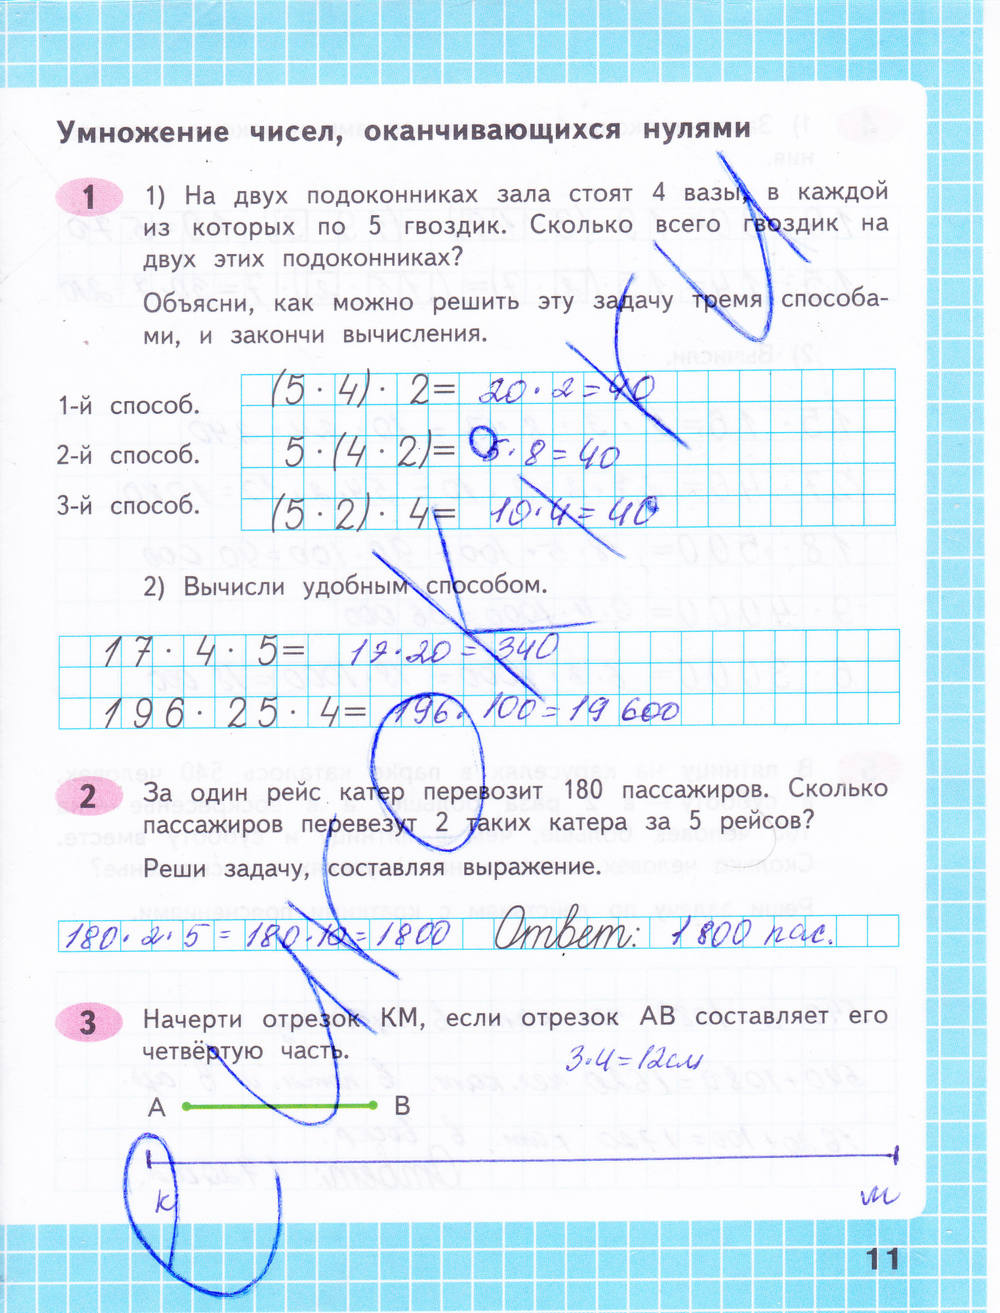 Умножение чисел, оканчивающихся нулями
1 1) На двух подоконниках зала стоят 4 вазы, в каждой
из которых по 5 гвоздик. Сколько всего гвоздик на
двух этих подоконниках?
Объясни, как можно решить эту задачу тремя способа-
ми, и закончи вычисления.
1-й способ. (5 · 4) · 2= 20 · 2 = 40
2-й способ. 5 · (4 · 2)= 5 · 8 = 40
3-й способ. (5 · 2) · 4= 10 · 4 = 40
2) Вычисли удобным способом.
17 · 4 · 5= 17 · 20 = 340
196 · 25 · 4= 196 · 100 = 19 600
2 За один рейс катер перевозит 180 пассажиров. Сколько
пассажиров перевезут 2 таких катера за 5 рейсов?
Реши задачу, составляя выражение.
180 · 2 · 5 = 180 · 10 = 1800 Ответ: 1800 пас.
3 Начерти отрезок КМ, если отрезок АВ составляет его
четвёртую часть.
3·4=12см
А В
К М
11